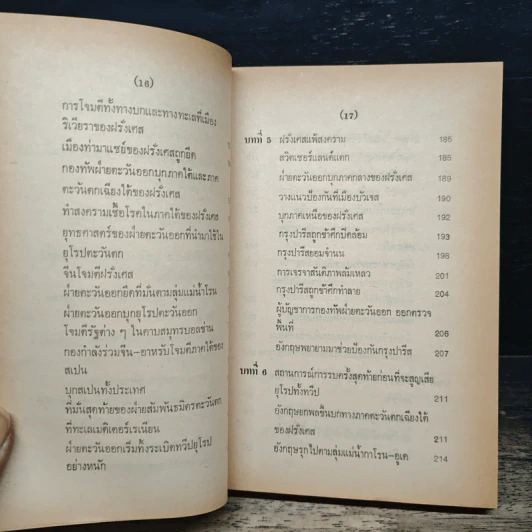 (16)
การโจมตีทั้งทางบกและทางทะเลที่เมือง
ริเวียราของฝรั่งเศส
เมืองทำมาแซย์ของฝรั่งเศสถูกยึด
กองทัพฝ่ายตะวันออกบุกภาคใต้และภาค
ตะวันตกเฉียงใต้ของฝรั่งเศส
ทำสงครามเชื้อโรคในภาคใต้ของฝรั่งเศส
ยุทธศาสตร์ของฝ่ายตะวันออกที่นำมาใช้ใน
ยุโรปตะวันตก
จีนโจมตีฝรั่งเศส
ฝ่ายตะวันออกยึดที่มั่นตามลุ่มแม่น้ำโรน
ฝ่ายตะวันออกบุกยุโรปตะวันออก
โจมตีรัฐต่าง ๆ ในคาบสมุทรบอลข่าน
กองกำลังร่วมจีน-อาหรับโจมตีภาคใต้ของ
สเปน
บุกสเปนทั้งประเทศ
ที่มั่นสุดท้ายของฝ่ายสัมพันธมิตรตะวันตก
ที่ทะเลเมดิเตอร์เรเนียน
ฝ่ายตะวันออกเริ่มทิ้งระเบิดทวีปยุโรป
อย่างหนัก
(17)
บทที่ 5 ฝรั่งเศสแพ้สงคราม 185
สวิตเซอร์แลนด์แตก 185
ฝ่ายตะวันออกบุกภาคกลางของฝรั่งเศส 189
วางแนวป้องกันที่เมืองบัวเจส 190
บุกภาคเหนือของฝรั่งเศส 192
กรุงปารีสถูกข้าศึกปิดล้อม 193
กรุงปารีสยอมจำนน 198
การเจรจาสันติภาพล้มเหลว 201
กรุงปารีสถูกข้าศึกทำลาย 204
ผู้บัญชาการกองทัพฝ่ายตะวันออก ออกตรวจ
พื้นที่ 206
อังกฤษพยายามมาช่วยป้องกันกรุงปารีส 207
บทที่ 6 สถานการณ์การรบครั้งสุดท้ายก่อนที่จะสูญเสีย
ยุโรปทั้งทวีป 211
อังกฤษยกพลขึ้นบกทางภาคตะวันตกเฉียงใต้
ของฝรั่งเศส 211
อังกฤษรุกไปตามลุ่มแม่น้ำกาโรน-อูเด 214